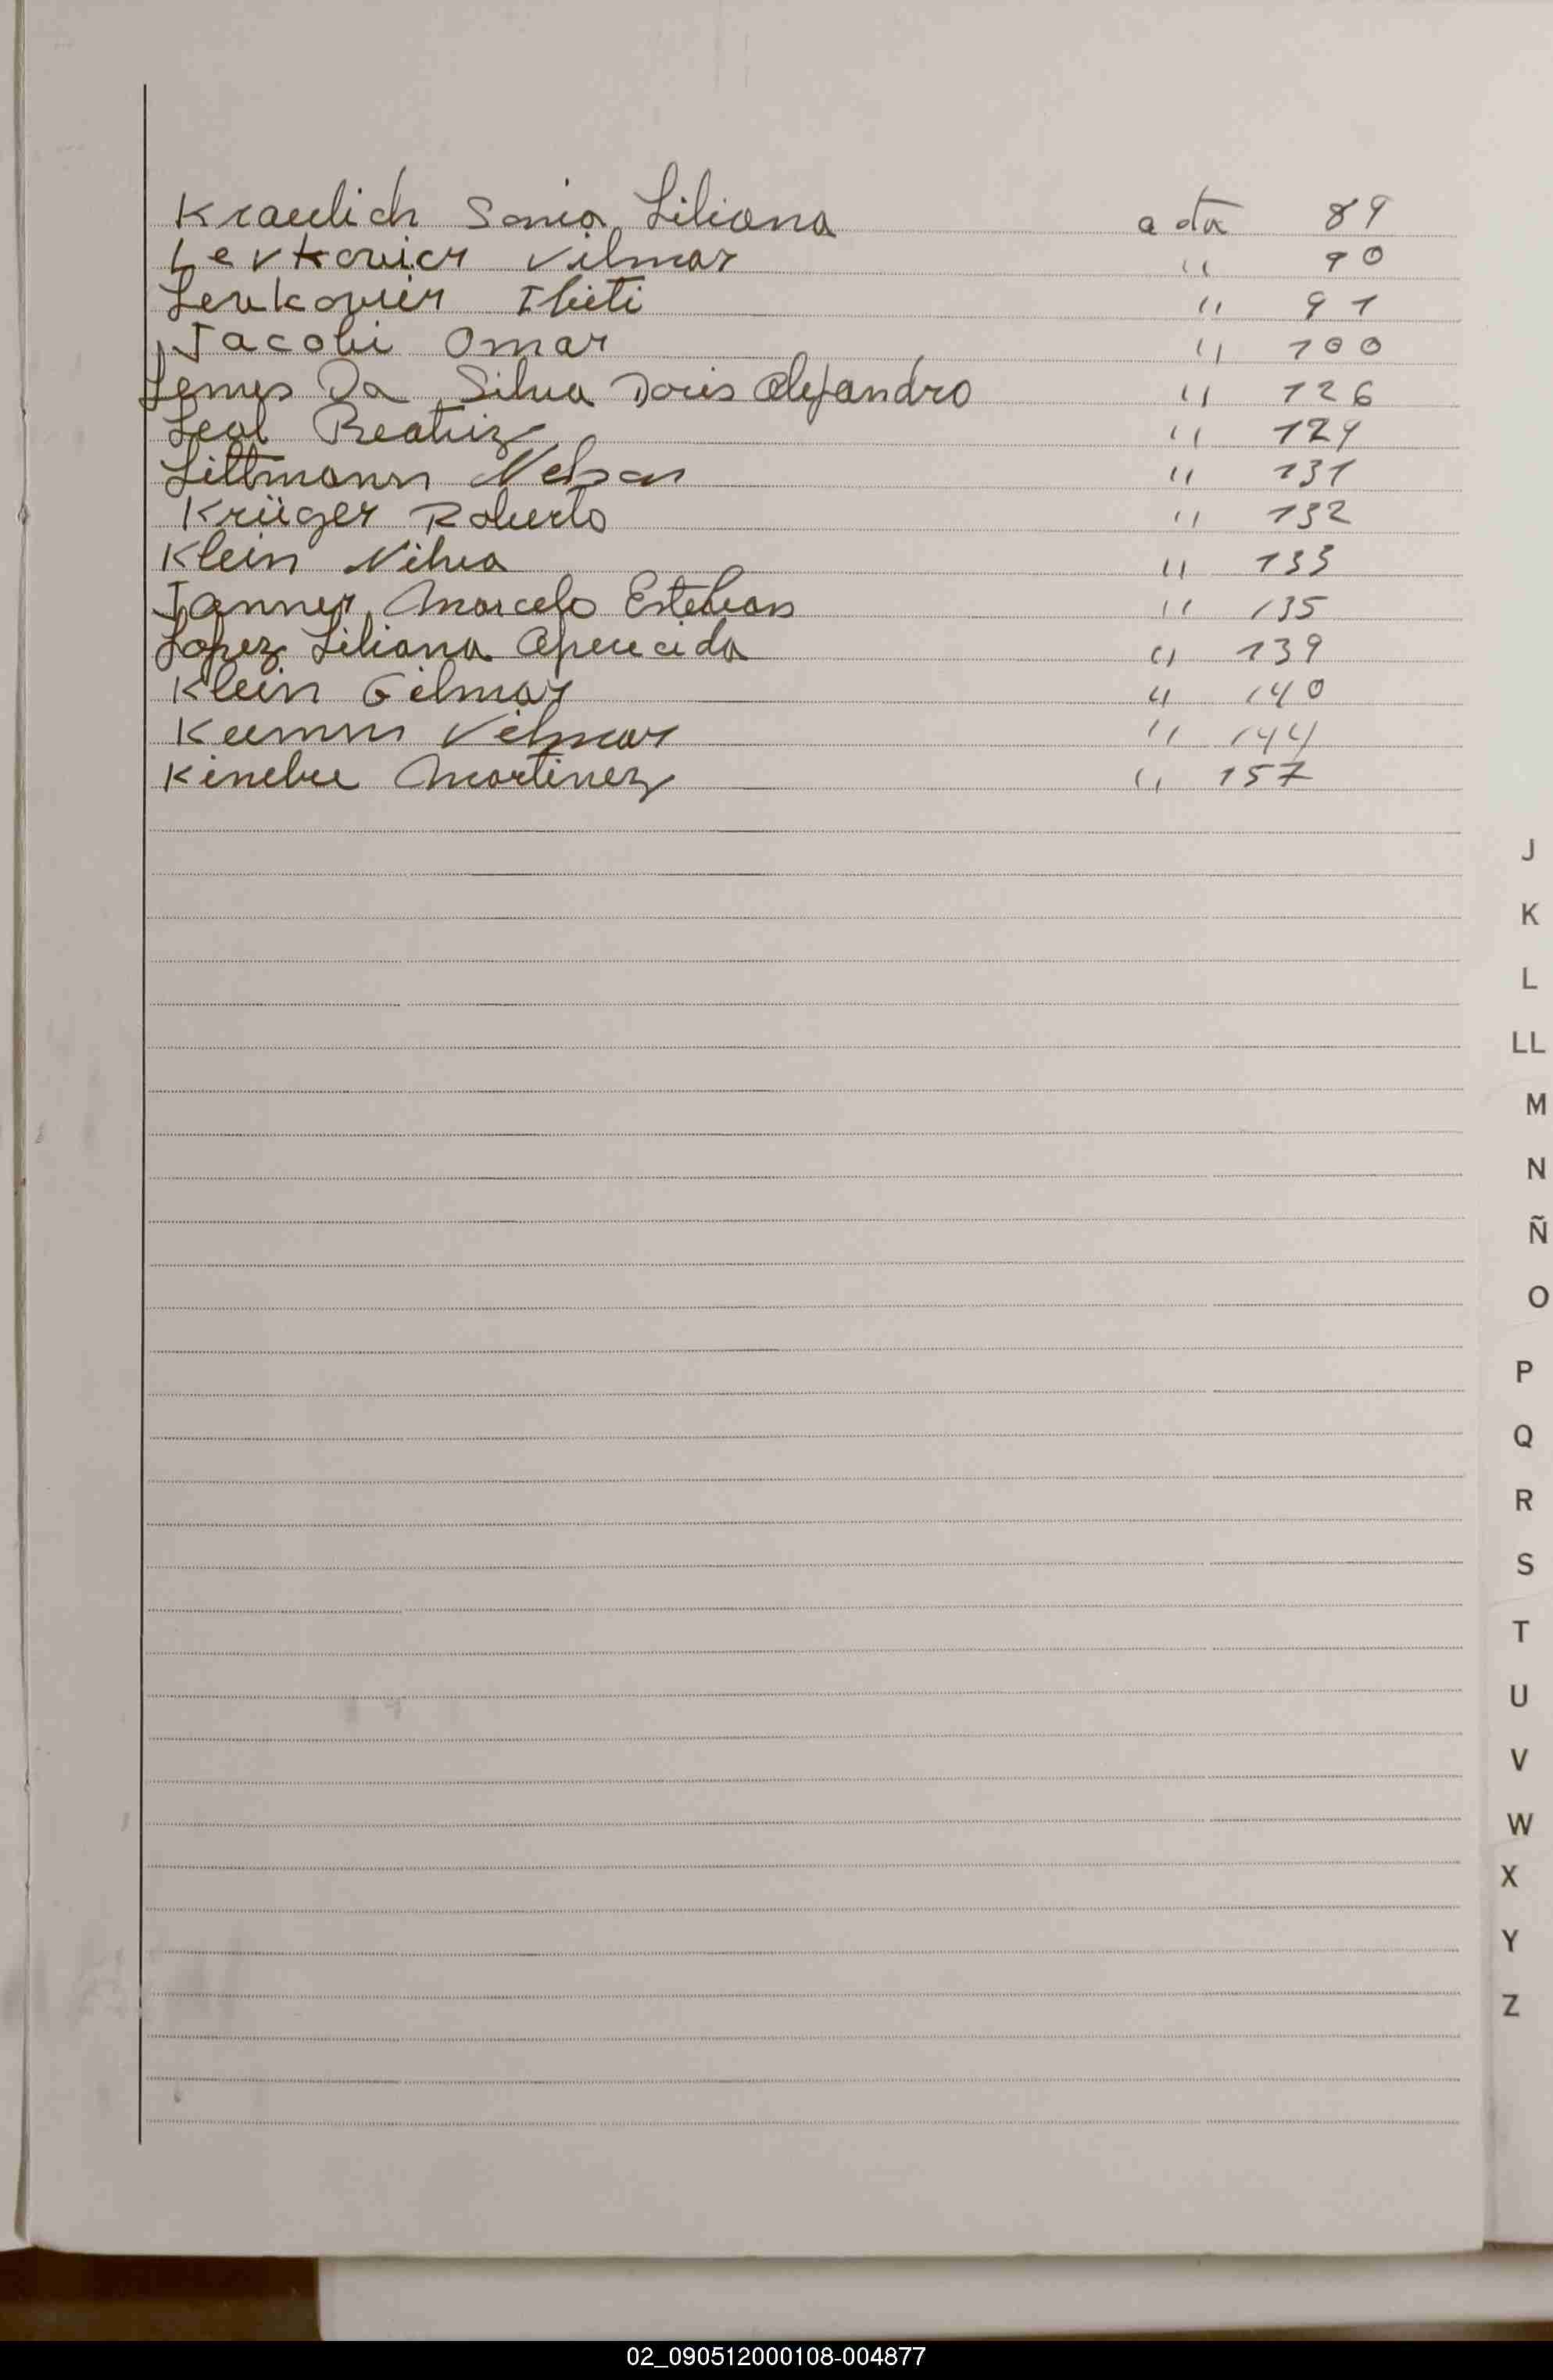 Kraulich Sonia Liliana acta 89
Levkovicz Vilmar " 90
Levkovicz Ibiti " 91
Jacobi Omar " 100
Lemes Da Silva Doris Alejandro " 126
Leal Beatriz " 129
Littmann Nelson " 131
Krüger Roberto " 132
Klein Nilva " 133
Janner Marcelo Esteban " 135
Lopez Liliana Aparecida " 139
Klein Gilmar " 140
Kumm Vilmar " 144
Martinez " 157
J
K
L
LL
M
N
Ñ
O
P
Q
R
S
T
U
V
W
X
Y
Z
02_090512000108-004877